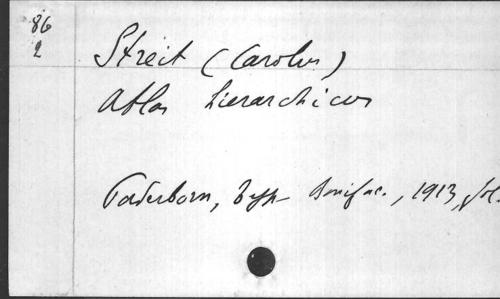 86
2
Streit (Carolus)
Atlas hierarchicus
Paderborn, typ. Bonifac., 1913, fol.